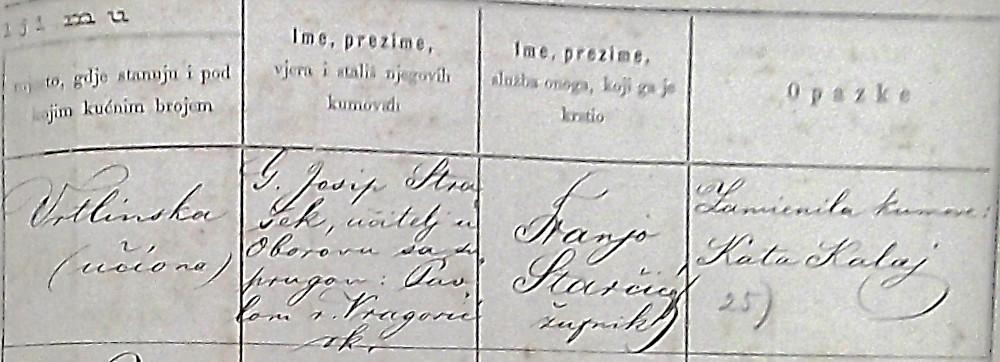 mjesto, gdje stanuju i pod
kojim kućnim brojem
Ime, prezime,
vjera i stališ njegovih
kumovah
Ime, prezime,
služba onoga, koji ga je
krstio
Opazke
Vrtlinska
(učiona)
G. Josip Stra
šek, učitelj u
Oborovu sa su
prugom: Pav
lom r.
rk.
Franjo
Starčić
župnik
Zamienila kumove:
Kata Kalaj
25)